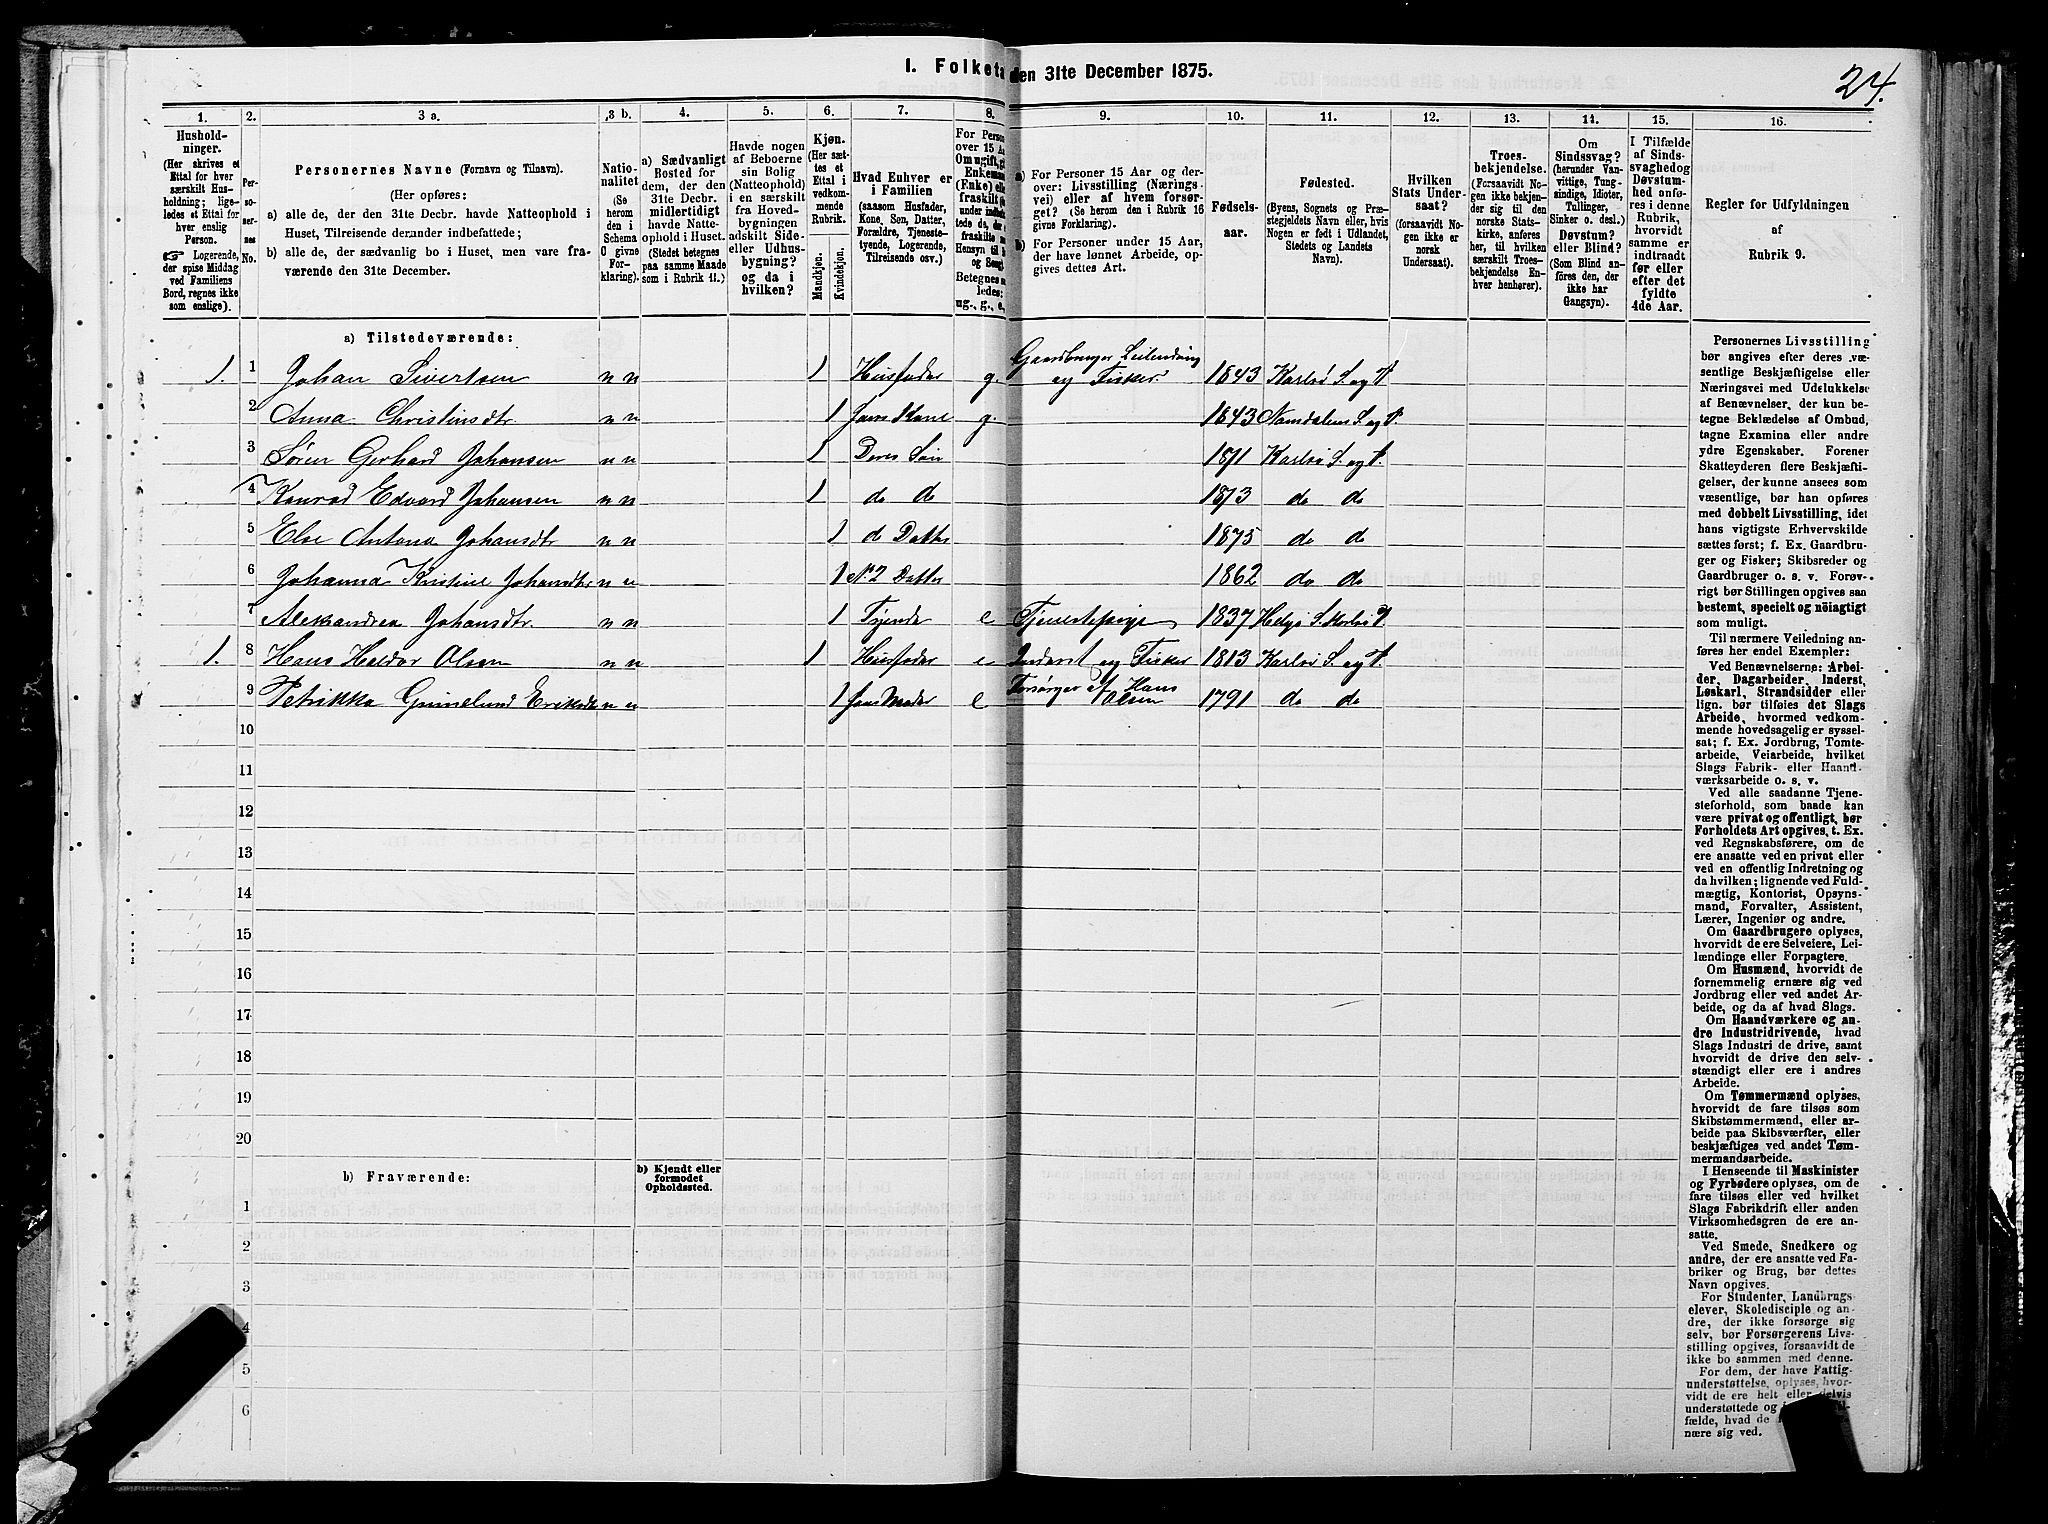 I. Folketa den 31te December 1875.
24.
1.
Hushold-
ninger.
(Her skrives et
Ettal for hver
særskilt Hus-
holdning; lige-
ledes et Ettal for
hver enslig
Person.
☞ Logerende,
der spise Middag
ved Familiens
Bord, regnes ikke
som enslige).
2.
Per-
so-
ner-
nes
No.
3 a.
Personernes Navne (Fornavn og Tilnavn).
(Her opføres:
a) alle de, der den 31te Decbr. havde Natteophold i
Huset, Tilreisende derunder indbefattede;
b) alle de, der sædvanlig bo i Huset, men vare fra-
værende den 31te December.
3 b.
Natio-
nalitet
(Se
herom
den i
Schema
0 givne
For-
klaring).
4.
a) Sædvanligt
Bosted for
dem, der den
31te Decbr.
midlertidigt
havde Natte-
ophold i Huset.
(Stedet betegnes
paa samme Maade
som i Rubrik 11.)
5.
Havde nogen
af Beboerne
sin Bolig
(Natteophold)
i en særskilt
fra Hoved-
bygningen
adskilt Side-
eller Udhus-
bygning?
og da i
hvilken?
6.
Kjøn.
(Her sæt-
tes et
Ettal i
vedkom-
mende
Rubrik.
Mandkjøn.
Kvindekjøn.
7.
Hvad Enhver er
i Familien
(saasom Husfader,
Kone, Søn, Datter,
Forældre, Tjeneste-
tyende, Logerende,
Tilreisende osv.)
8.
For Person
over 15 Aa
Om ugift, gi
Enkeman
(Enke) elle
fraskilt
9.
a) For Personer 15 Aar og der-
over: Livsstilling (Nærings-
vei) eller af hvem forsør-
get? (Se herom den i Rubrik 16
givne Forklaring).
b) For Personer under 15 Aar,
der have lønnet Arbeide, op-
gives dettes Art.
10.
Fødsels-
aar.
11.
Fødested.
(Byens, Sognets og Præ-
stegjeldets Navn eller, hvis
Nogen er født i Udlandet,
Stedets og Landets
Navn).
12.
Hvilken
Stats Under-
saat?
(forsaavidt No-
gen ikke er
norsk
Undersaat).
13.
Troes-
bekjendelse.
(Forsaavidt No-
gen ikke bekjen-
der sig til den
norske Stats-
kirke, anføres
her, til hvilken
særskilt Troes-
bekjendelse En-
hver henhører).
14.
Om
Sindssvag?
(herunder Van-
vittige, Tung-
sindige, Idioter,
Tullinger,
Sinker o. desl.)
Døvstum?
eller Blind?
(Som Blind an-
føres den, der
ikke har
Gangsyn).
15.
I Tilfælde
af Sinds-
svaghedog
Døvstum-
hed anfø-
res i denne
Rubrik,
hvorvidt
samme er
indtraadt
før eller
efter det
fyldte
4de Aar.
16.
Regler for Udfyldningen
af
Rubrik 9.
a) Tilstedeværende:
1. 1 Johan Sivertsen n n 1 Husfader g. Gaardbruger Leilending og Fisker. 1843 Karlsø S. og P.
2 Anna Christinsdtr. n n 1 hans Kone g. 1843 Namdalens S. og P.
3 Sören Gerhard Johansen n n 1 Deres Søn 1871 Karlsø S. og P.
4 Konrad Edvard Johansen n n 1 do do 1873 do do
5 Else Antona Johansdtr n n 1 d Datter 1875 do do
6 Johanna Kristine Johansdtr n n 1 No 2 Datter 1862 do do
7 Aleksandrea Johansdtr. n n 1 Tyende e Tjenestepige 1837 Helgø S. Karlsø P.
1. 8 Hans Heldor Olsen n n 1 Husfader e Inderst og Fisker 1813 Karlsø S. og P.
9 Petrikka Grunelund Eriksdt n n 1 hans Moder e Forsørges af Hans Olsen 1791 do do
10
11
12
13
14
15
16
17
18
19
20
b) Fraværende:
b) Kjendt eller
formodet
Opholdssted.
1
2
3
4
5
6
Personernes Livsstilling
bør angives efter deres væ-
sentlige Beskjæftigelse eller
Næringsvei med Udelukkelse
af Benævnelser, der kun be-
tegne Beklædelse af Ombud,
tagne Examina eller andre
ydre Egenskaber. Forener
Skatteyderen flere Beskjæfti-
gelser, der kunne ansees som
væsentlige, bør han opføres
med dobbelt Livsstilling, idet
hans vigtigste Erhvervskilde
sættes først; f. Ex. Gaardbru-
ger og Fisker; Skibsreder og
Gaardbruger o. s. v. Forøv-
rigt bør Stillingen opgives saa
bestemt, specielt og nöiagtigt
som muligt.
Til nærmere Veiledning an-
føres her endel Exempler:
Ved Benævnelserne: Arbei-
der, Dagarbeider, Inderst,
Løskarl, Strandsidder eller
lign. bør tilføies det Slags
Arbeide, hvormed vedkom-
mende hovedsagelig er syssel-
sat; f. Ex. Jordbrug, Tomte-
arbeide, Veiarbeide, hvilket
Slags Fabrik- eller Haand-
værksarbeide o. s. v.
Ved alle saadanne Tjene-
steforhold, som baade kan
være privat og offentligt, bør
Forholdets Art opgives, t. Ex.
ved Regnskabsførere, om de
ere ansatte ved en privat eller
ved en offentlig Indretning og
da hvilken; lignende ved Fuld-
mægtig, Kontorist, Opsyns-
mand, Forvalter, Assistent,
Lærer, Ingeniør og andre.
Om Gaardbrugere oplyses,
hvorvidt de ere Selveiere, Lei-
lændinge eller Forpagtere.
Om Husmænd, hvorvidt de
fornemmelig ernære sig ved
Jordbrug eller ved andet Ar-
beide, og da af hvad Slags.
Om Haandværkere og an-
dre Industridrivende, hvad
Slags Industri de drive, samt
hvorvidt de drive den selv-
stændigt eller ere i andres
Arbeide.
Om Tømmermænd oplyses,
hvorvidt de fare tilsøs som
Skibstømmermænd, eller ar-
beide paa Skibsværfter, eller
beskjæftiges ved andet Tøm-
mermandsarbeide.
I Henseende til Maskinister
og Fyrbødere oplyses, om de
fare tilsøs eller ved hvilket
Slags Fabrikdrift eller anden
Virksomhedsgren de ere an-
satte.
Ved Smede, Snedkere og
andre, der ere ansatte ved Fa-
briker og Brug, bør dettes
Navn opgives.
For Studenter, Landbrugs-
elever, Skoledisciple og an-
dre, der ikke forsørge sig
selv, bør Forsørgerens Livs-
stilling opgives, forsaavidt de
ikke bo sammen med denne.
For dem, der have Fattig-
understøttelse, oplyses, hvor-
vidt de ere helt eller delvis
understøttede og i
fælde, hvad de
nære sig ved.